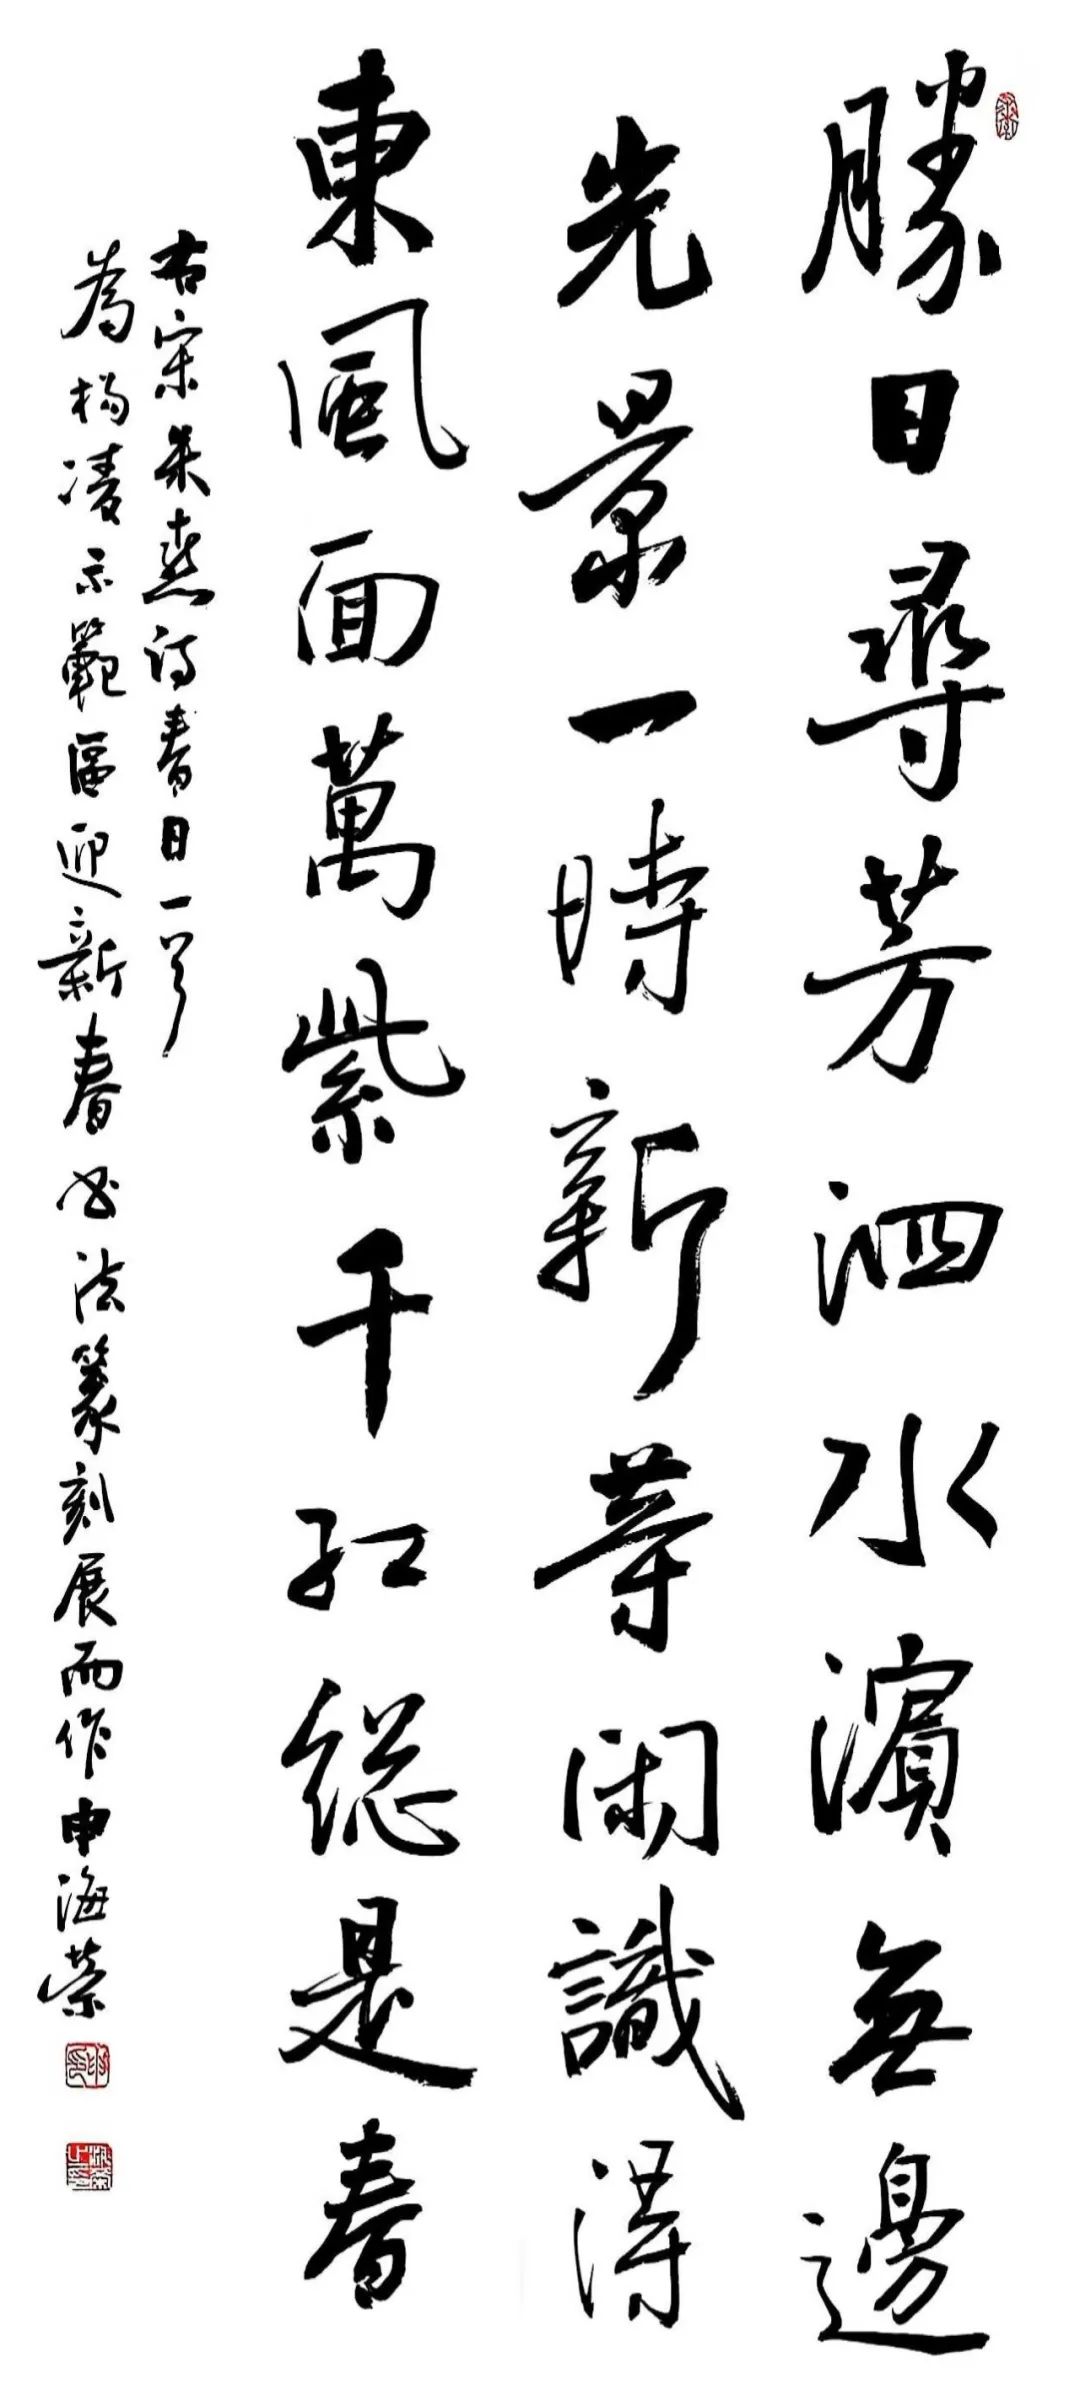 勝日尋芳泗水濱無邊
光景一時新等閑識得
東風面萬紫千紅總是春
右宋朱熹詩春日一首
為楊凌示範區迎新春書法篆刻展而作申海榮